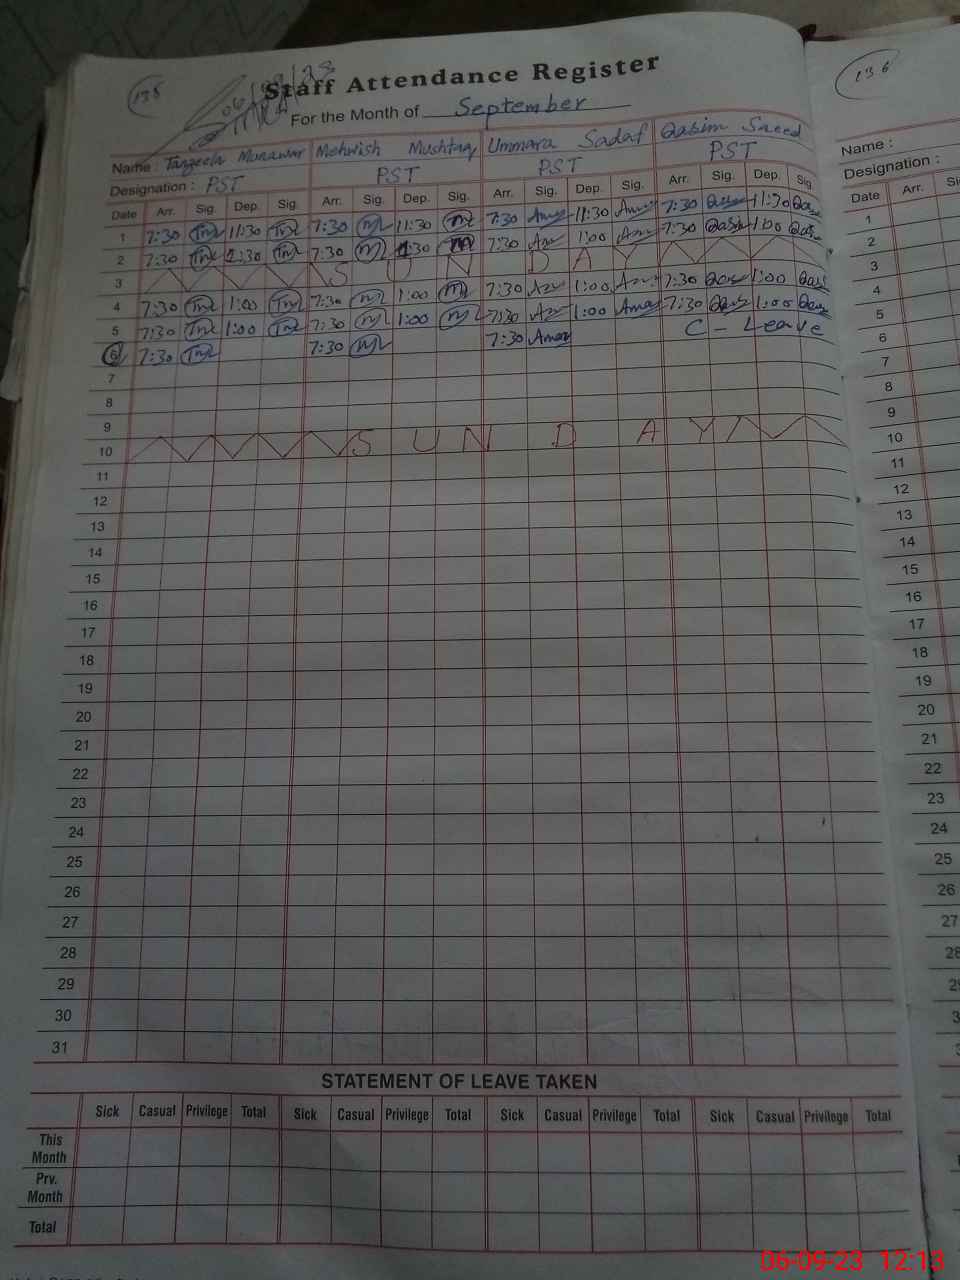 135
06/09/23
Staff Attendance Register
136
For the Month of September
Name : Tanzeela Munawar Mehwish Mushtaq Ummara Sadaf Qasim Saeed
Name :
Designation : PST PST PST PST
Designation :
Date Arr. Sig. Dep. Sig. Arr. Sig. Dep. Sig. Arr. Sig. Dep. Sig. Arr. Sig. Dep. Sig.
Date Arr.
1 7:30 11:30 7:30 11:30 7:30 11:30 7:30 11:30
1
2 7:30 7:30 7:30 1:00 7:30 1:00
2
3 SUNDAY
3
4 7:30 1:00 7:30 1:00 7:30 1:00 7:30 1:00
4
5 7:30 1:00 7:30 1:00 7:30 1:00 7:30 1:00
5
6 7:30 7:30 7:30 C - Leave
6
7
7
8
8
9
9
10 SUNDAY
10
11
11
12
12
13
13
14
14
15
15
16
16
17
17
18
18
19
19
20
20
21
21
22
22
23
23
24
24
25
25
26
26
27
27
28
28
29
30
31
STATEMENT OF LEAVE TAKEN
Sick Casual Privilege Total Sick Casual Privilege Total Sick Casual Privilege Total Sick Casual Privilege Total
This
Month
Prv.
Month
Total
06-09-23 12:13